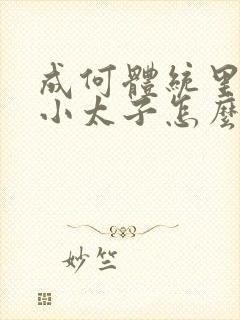 成何體統里
小太子怎麼
妙竺